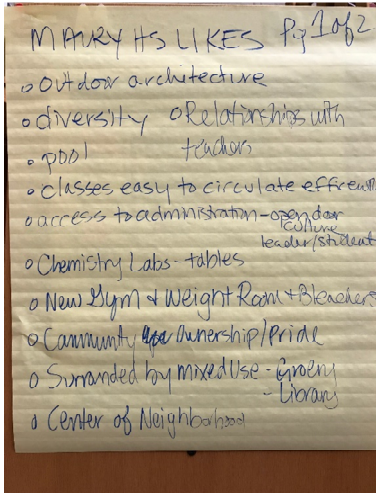 MAURY HS LIKES Pg 1 of 2
o Outdoor architecture
o diversity o Relationships with
teachers
o pool
o classes easy to circulate efficently
o access to administration - open door
culture
leader/student
o Chemistry Labs - tables
o New Gym & Weight Room & Bleachers
o Community Ownership/Pride
o Surrounded by mixed Use - Grocery
- Library
o Center of Neighborhood